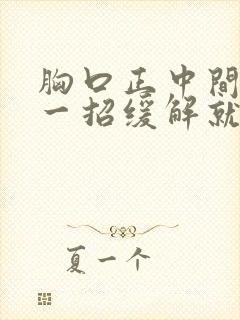 胸口正中間
一招缓解就
夏一个